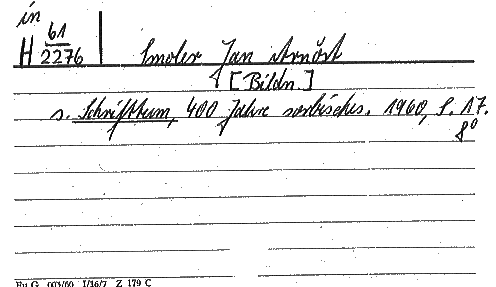 in
H 61/2276
Smoler Jan Arnošt
[Bildn.]
s. Schrifttum, 400 Jahre sorbisches. 1960, S. 17.
8°
Fu G 003/60 I/16/7 Z 179 C